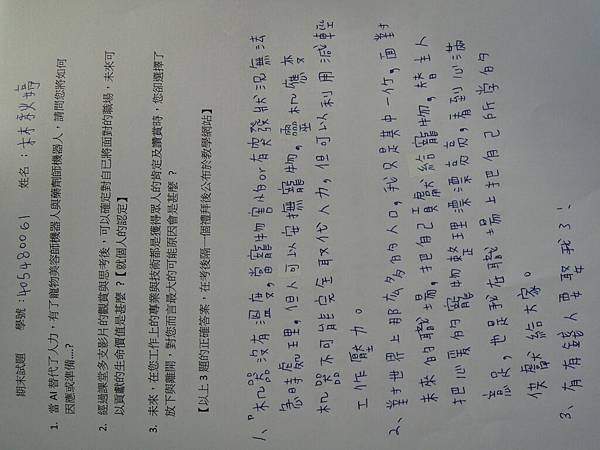 期末試題 學號:405480061 姓名:林秋婷
1. 當 AI 替代了人力,有了寵物美容師機器人與藥劑師機器人,請問您將如何
因應或準備....?
2. 經過課堂多支影片的觀賞與思考後,可以確定對自已將面對的職場,未來可
以貢獻的生命價值是甚麼?【就個人的認定】
3. 未來,在您工作上的專業與技術都是獲得眾人的肯定及讚賞時,您卻選擇了
放下與離開,對您而言最大的可能原因會是甚麼?
【以上 3 題的正確答案,在考後隔一個禮拜後公布於教學網站】
1、机器沒有溫度,當寵物害怕or有突發狀況無法
急時處理,但人可以安撫寵物,靈机應变
机器不可能完全取代人力,但可以利用減輕
工作壓力。
2、對于世界上那么多的人口,我只是其中一个,面對
未來的職場,把自己貢獻給寵物,替主人
把心愛的寵物整理漂漂亮亮,看到心滿
意足,也是我在職場上把自己所学的
供獻給大家。
3、有有錢人要娶我了!